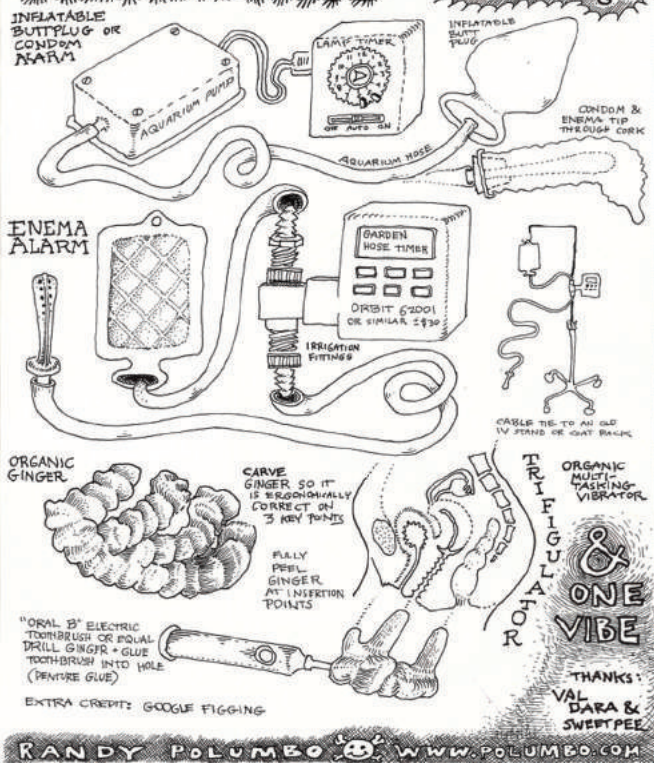 INFLATABLE
BUTTPLUG OR
CONDOM
ALARM
AQUARIUM PUMP
LAMP TIMER
OFF AUTO ON
INFLATABLE
BUTT
PLUG
AQUARIUM HOSE
CONDOM &
ENEMA TIP
THROUGH CORK
ENEMA
ALARM
GARDEN
HOSE TIMER
ORBIT 62001
OR SIMILAR ±$30
IRRIGATION
FITTINGS
CABLE TIE TO AN OLD
IV STAND OR COAT RACK
ORGANIC
GINGER
CARVE
GINGER SO IT
IS ERGONOMICALLY
CORRECT ON
3 KEY POINTS
FULLY
PEEL
GINGER
AT INSERTION
POINTS
TRIFIGULATOR
ORGANIC
MULTI-
TASKING
VIBRATOR
"ORAL B" ELECTRIC
TOOTHBRUSH OR EQUAL
DRILL GINGER + GLUE
TOOTHBRUSH INTO HOLE
(DENTURE GLUE)
EXTRA CREDIT: GOOGLE FIGGING
& 
ONE
VIBE
THANKS:
VAL
DARA &
SWEETPEE
RANDY POLUMBO WWW.POLUMBO.COM